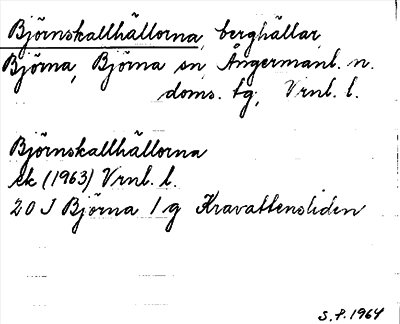 Björnskallhällorna, berghällar,
Björna, Björna sn, Ångermanl. n.
doms. tg, Vrnl. l.
Björnskallhällorna
ek (1963) Vrnl. l.
20 J Björna 1 g Kravattensliden
S.F. 1964